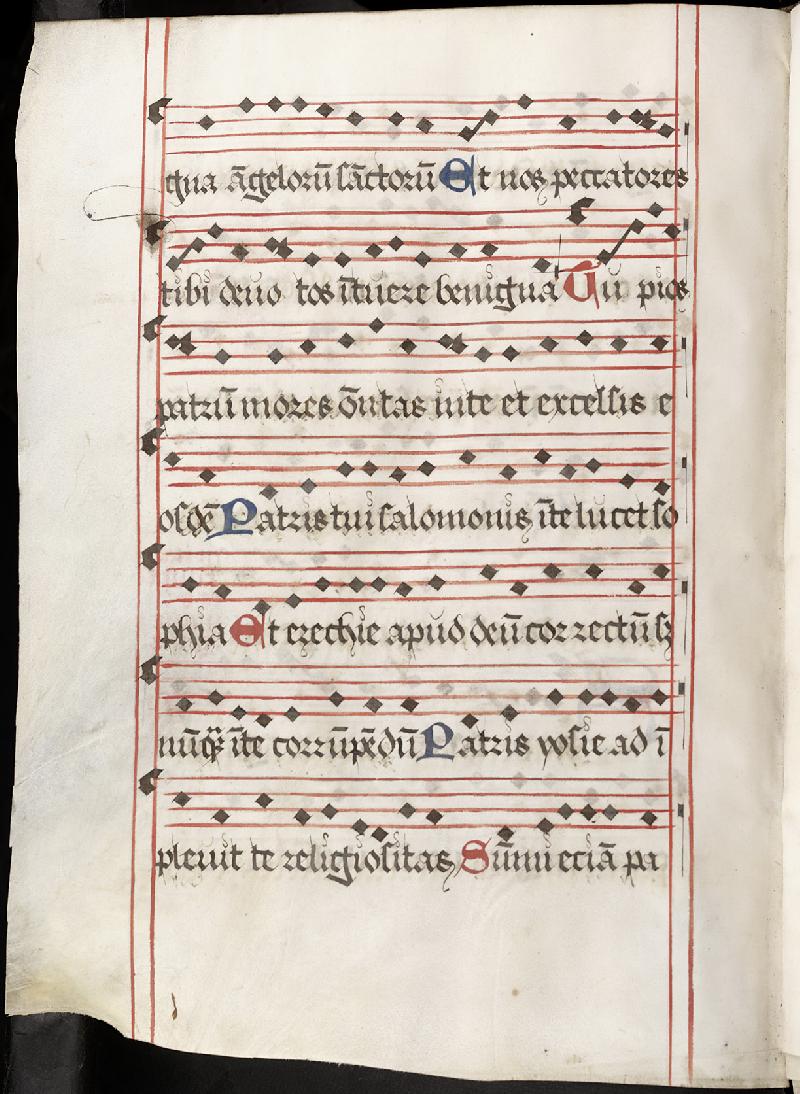 gna āgelorū sāctorū Et nos peccatores
tibi deuo tos ītuere benigna Qui pios
patrū mores ōntas inte et excelsis e
osdē Patris tui salomonis īte lucet so
phia Et ezechie apud deū cor rectū sz
nūqȝ īte corrūpēdū Patris yosie ad ī
pleuit te religiositas Sūmi eciā pa